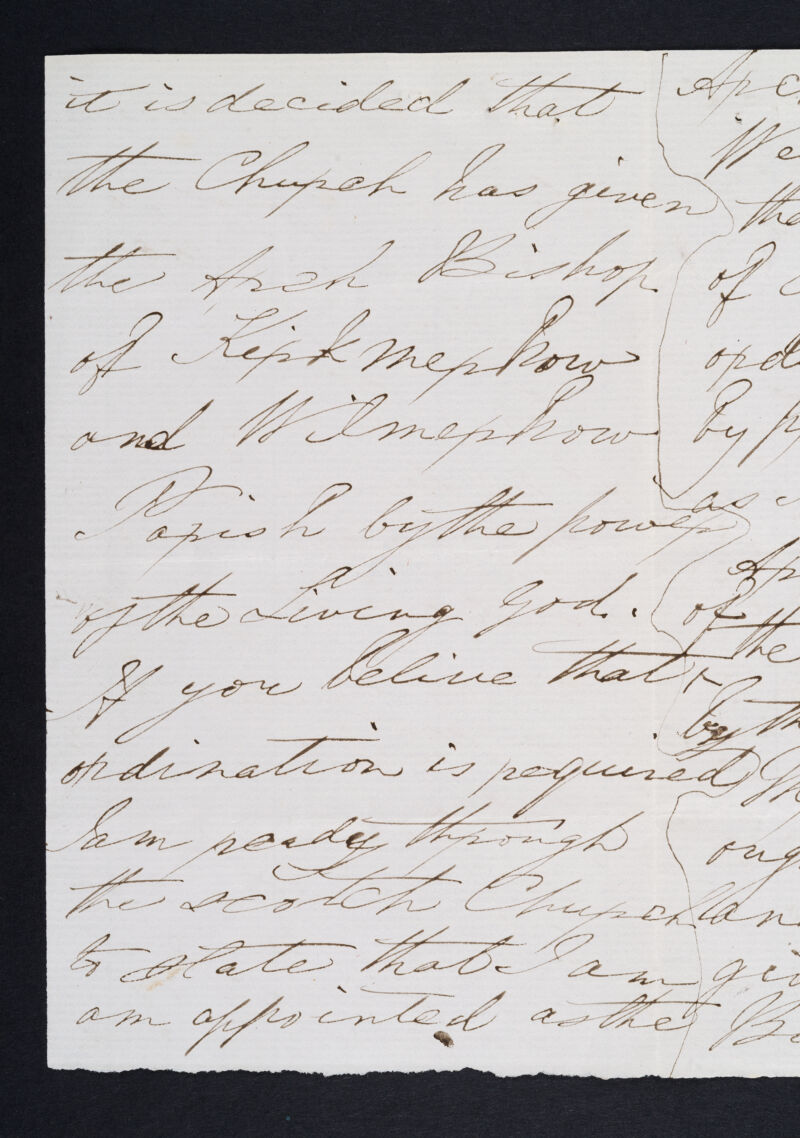 it is decided that
the Church has given
the Arch Bishop
of Kirkmerkow
and Wilmerkow
Parish by the power
of the Living God.
If you belive that
ordination is required
I am ready through
the scotch Church
to state that I am
am appointed as the
We
the
of
by
as
of
the
by th
and